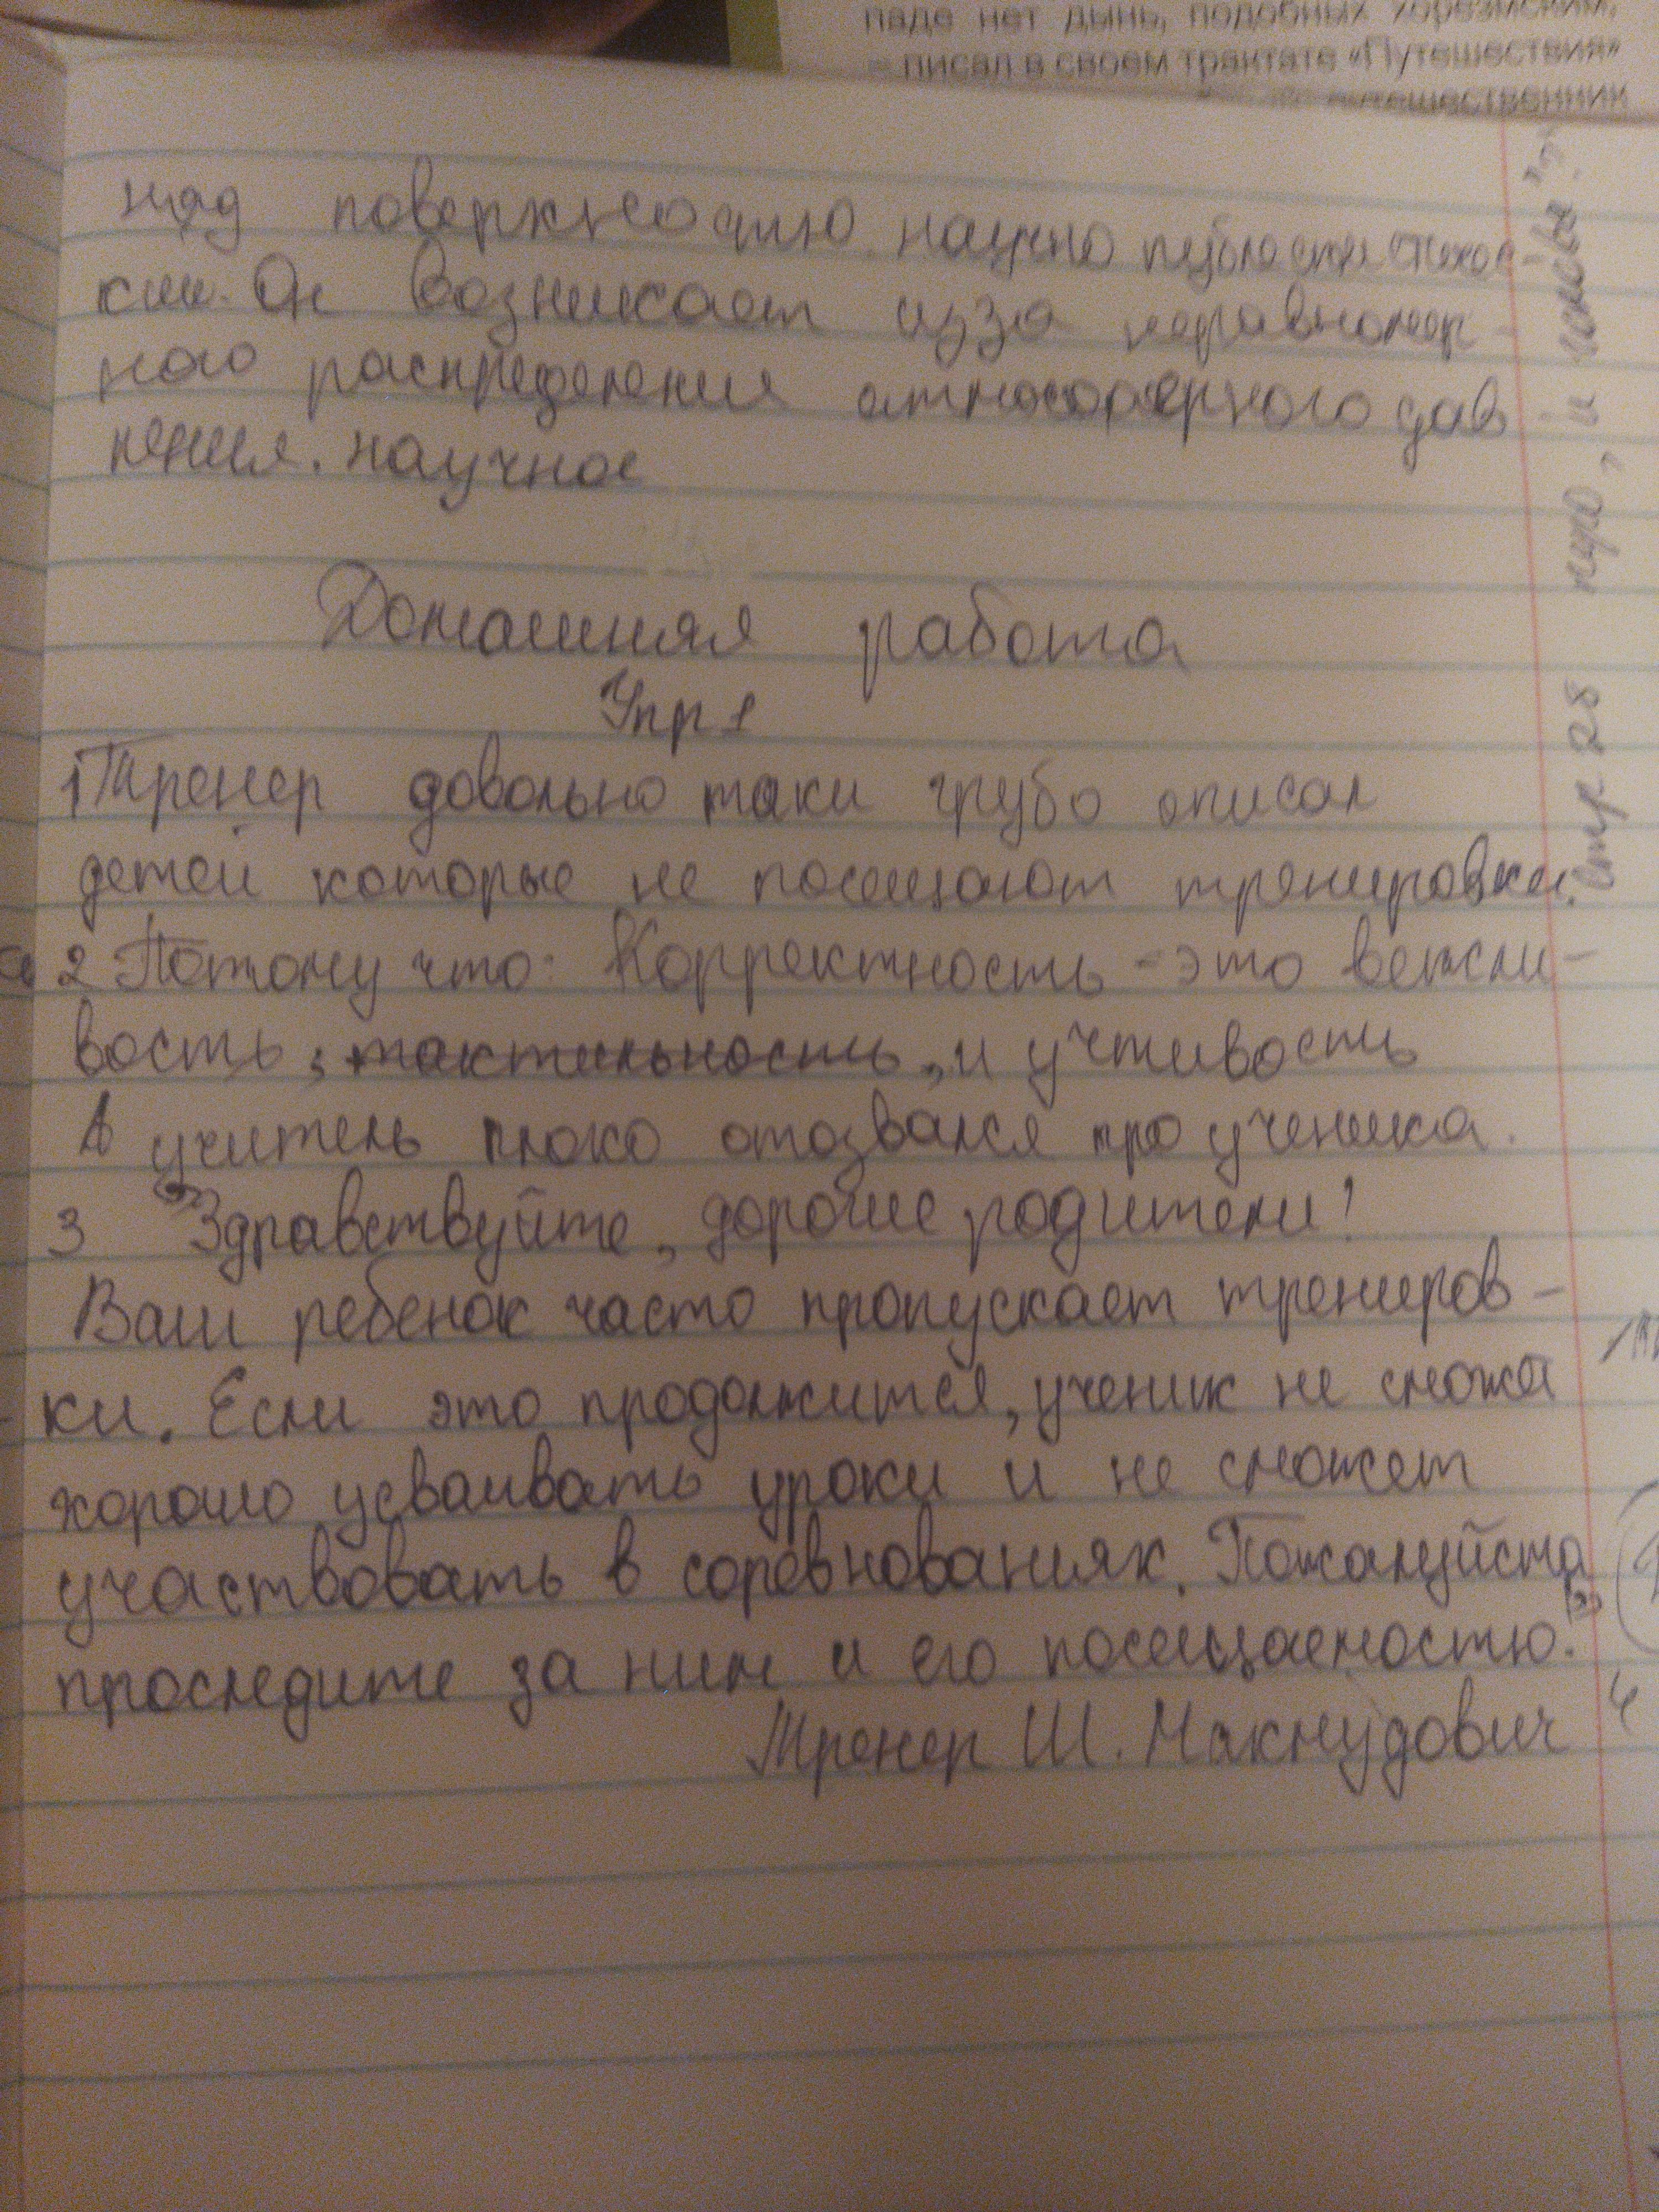 паде нет дынь, подобных хорезмским,
– писал в своем трактате «Путешествия»
путешественник
над поверхностью научно
кии. Он возникает изза неравномер-
ного распределения атмосферного дав
ления. научное
Домашняя работа
Упр 1
1 Тренер довольно таки грубо описал
детей которые не посещают тренировки.
2 Потому что: Корректность - это вежли-
вость, тактильность, и учтивость
А учитель плохо отозвался про ученика.
3 Здравствуйте, дорогие родители!
Ваш ребенок часто пропускает трениров-
ки. Если это продолжится, ученик не сможе
хорошо усваивать уроки и не сможет
участвовать в соревнованиях. Пожалуйста,
проследите за ним и его посещаемостью.
Тренер Ш. Махмудович
стр 28